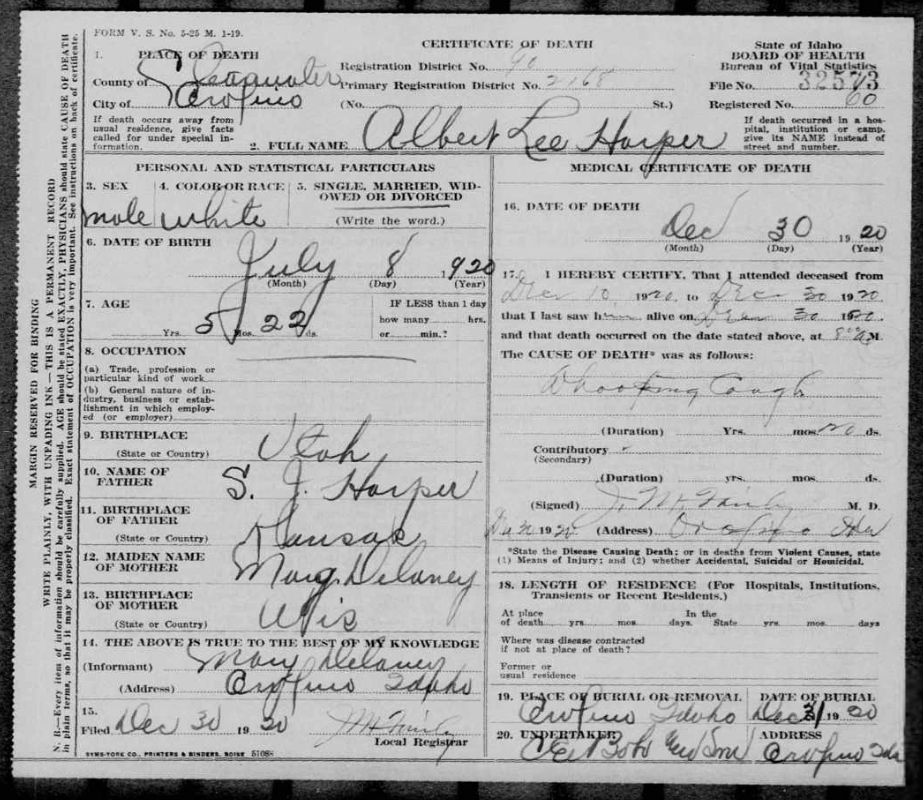 FORM V. S. No. 5-25 M. 1-19.
CERTIFICATE OF DEATH
State of Idaho
BOARD OF HEALTH
Bureau of Vital Statistics
1. PLACE OF DEATH
County of Clearwater
City of Orofino
Registration District No. 90
Primary Registration District No. 2168
(No. St.)
File No. 32573
Registered No. 60
If death occurs away from usual residence, give facts called for under special information.
2. FULL NAME Albert Lee Harper
If death occurred in a hospital, institution or camp, give its NAME instead of street and number.
PERSONAL AND STATISTICAL PARTICULARS
3. SEX
male
4. COLOR OR RACE
white
5. SINGLE, MARRIED, WIDOWED OR DIVORCED
(Write the word.)
6. DATE OF BIRTH
July 8 1920
(Month) (Day) (Year)
7. AGE
Yrs. 5 Mos. 22 ds.
IF LESS than 1 day
how many hrs.
or min.?
8. OCCUPATION
(a) Trade, profession or
particular kind of work
(b) General nature of in-
dustry, business or estab-
lishment in which employ-
ed (or employer)
9. BIRTHPLACE
(State or Country) Utah
10. NAME OF
FATHER S. J. Harper
11. BIRTHPLACE
OF FATHER
(State or Country) Kansas
12. MAIDEN NAME
OF MOTHER Mary Delaney
13. BIRTHPLACE
OF MOTHER
(State or Country) Wis
14. THE ABOVE IS TRUE TO THE BEST OF MY KNOWLEDGE
(Informant) Mary Delaney
(Address) Orofino Idaho
15.
Filed Dec 30 1920
Local Registrar
SYMS-YORK CO., PRINTERS & BINDERS, BOISE 51088
MEDICAL CERTIFICATE OF DEATH
16. DATE OF DEATH
Dec 30 1920
(Month) (Day) (Year)
17. I HEREBY CERTIFY, That I attended deceased from
Dec 10 1920, to Dec 30 1920
that I last saw him alive on Dec 30 1920.
and that death occurred on the date stated above, at 8 M.
The CAUSE OF DEATH* was as follows:
Whooping Cough
(Duration) Yrs. mos. 20 ds.
Contributory
(Secondary)
(Duration) yrs. mos. ds.
(Signed) M. D.
1920 (Address) Orofino Ida
*State the Disease Causing Death; or in deaths from Violent Causes, state
(1) Means of Injury; and (2) whether Accidental, Suicidal or Homicidal.
18. LENGTH OF RESIDENCE (For Hospitals, Institutions,
Transients or Recent Residents.)
At place of death yrs. mos. days. In the State yrs. mos. days
Where was disease contracted
if not at place of death?
Former or
usual residence
19. PLACE OF BURIAL OR REMOVAL
Orofino Idaho
DATE OF BURIAL
Dec 31 1920
20. UNDERTAKER
ADDRESS
Orofino Ida
MARGIN RESERVED FOR BINDING
WRITE PLAINLY, WITH UNFADING INK—THIS IS A PERMANENT RECORD
N. B.—Every item of information should be carefully supplied. AGE should be stated EXACTLY, PHYSICIANS should state CAUSE OF DEATH
in plain terms, so that it may be properly classified. Exact statement of OCCUPATION is very important. See instructions on back of certificate.